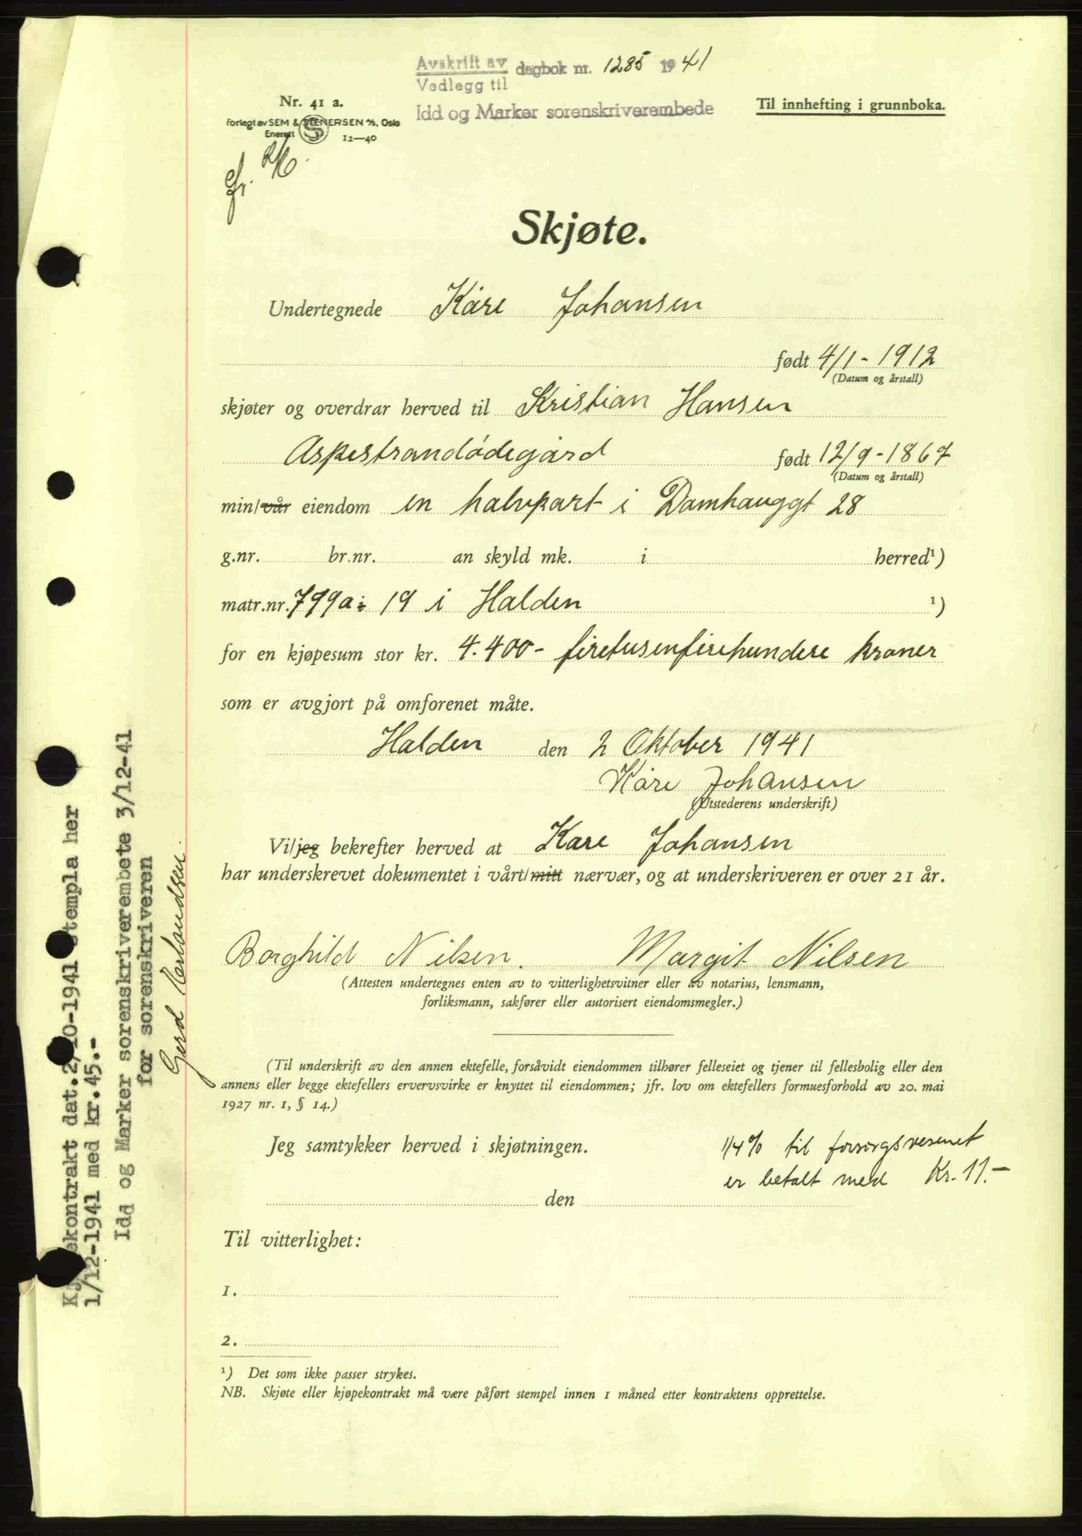 Avskrift av dagbok nr. 1285 1941
Vedlegg til
Idd og Marker sorenskriverembede
Nr. 41 a.
Forlagt av SEM & STENERSEN A/S, Oslo
Enerett 12—40
Til innhefting i grunnboka.
Skjøte.
Undertegnede Kåre Johansen
født 4/1 - 1912
(Datum og årstall)
skjøter og overdrar herved til Kristian Hansen
Aspestrandødegård født 12/9 - 1867
(Datum og årstall)
min/vår eiendom en halvpart i Damhauggt 28
g.nr. br.nr. an skyld mk. i herred¹)
matr.nr. 799a: 19 i Halden ¹)
for en kjøpesum stor kr. 4.400- firetusenfirehundere kroner
som er avgjort på omforenet måte.
Halden den 2 Oktober 1941
Kåre Johansen
(Utstederens underskrift)
Vi/jeg bekrefter herved at Kare Johansen
har underskrevet dokumentet i vårt/mitt nærvær, og at underskriveren er over 21 år.
Borghild Nilsen. Margit Nilsen
(Attesten undertegnes enten av to vitterlighetsvitner eller av notarius, lensmann,
forliksmann, sakfører eller autorisert eiendomsmegler.)
(Til underskrift av den annen ektefelle, forsåvidt eiendommen tilhører felleseiet og tjener til fellesbolig eller den
annens eller begge ektefellers ervervsvirke er knyttet til eiendommen; jfr. lov om ektefellers formuesforhold av 20. mai
1927 nr. 1, § 14.)
Jeg samtykker herved i skjøtningen.
1/4% til forsorgsvesenet
er betalt med Kr. 11.-
den
Til vitterlighet:
1.
2.
¹) Det som ikke passer strykes.
NB. Skjøte eller kjøpekontrakt må være påført stempel innen 1 måned etter kontraktens opprettelse.
Kjøpekontrakt dat.2/10-1941 stempla her
1/12-1941 med kr.45.-
Idd og Marker sorenskriverembete 3/12-41
for sorenskriveren